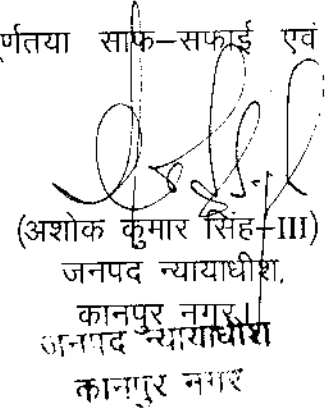 र्णतया साफ–सफाई एवं
(अशोक कुमार सिंह–III)
जनपद न्यायाधीश,
कानपुर नगर।
जनपद न्यायाधीश
कानपुर नगर